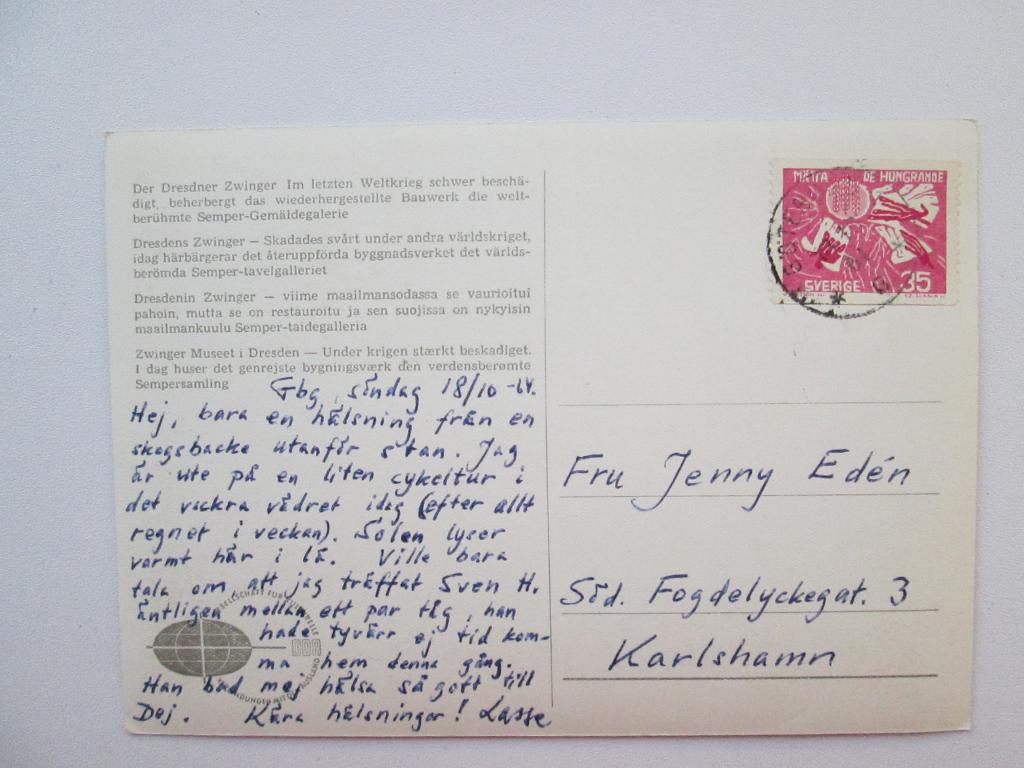 Der Dresdner Zwinger Im letzten Weltkrieg schwer beschä-
digt, beherbergt das wiederhergestellte Bauwerk die welt-
berühmte Semper-Gemäldegalerie
Dresdens Zwinger — Skadades svårt under andra världskriget,
idag härbärgerar det återuppförda byggnadsverket det världs-
berömda Semper-tavelgalleriet
Dresdenin Zwinger — viime maailmansodassa se vaurioitui
pahoin, mutta se on restauroitu ja sen suojissa on nykyisin
maailmankuulu Semper-taidegalleria
Zwinger Museet i Dresden — Under krigen stærkt beskadiget.
I dag huser det genrejste bygningsværk den verdensberømte
Sempersamling
Gbg, söndag 18/10 -64.
Hej, bara en hälsning från en
skogsbacke utanför stan. Jag
är ute på en liten cykeltur i
det vackra vädret idag (efter allt
regnet i veckan). Solen lyser
varmt här i lä. Ville bara
tala om, att jag träffat Sven H.
äntligen mellan ett par tåg, han
hade tyvärr ej tid kom-
ma hem denna gång.
Han bad mej hälsa så gott till
Dej. Kära hälsningar! Lasse
GESELLSCHAFT FÜR
DDR
MÄTTA DE HUNGRANDE
SVERIGE 35
Fru Jenny Edén
Söd. Fogdelyckegat. 3
Karlshamn